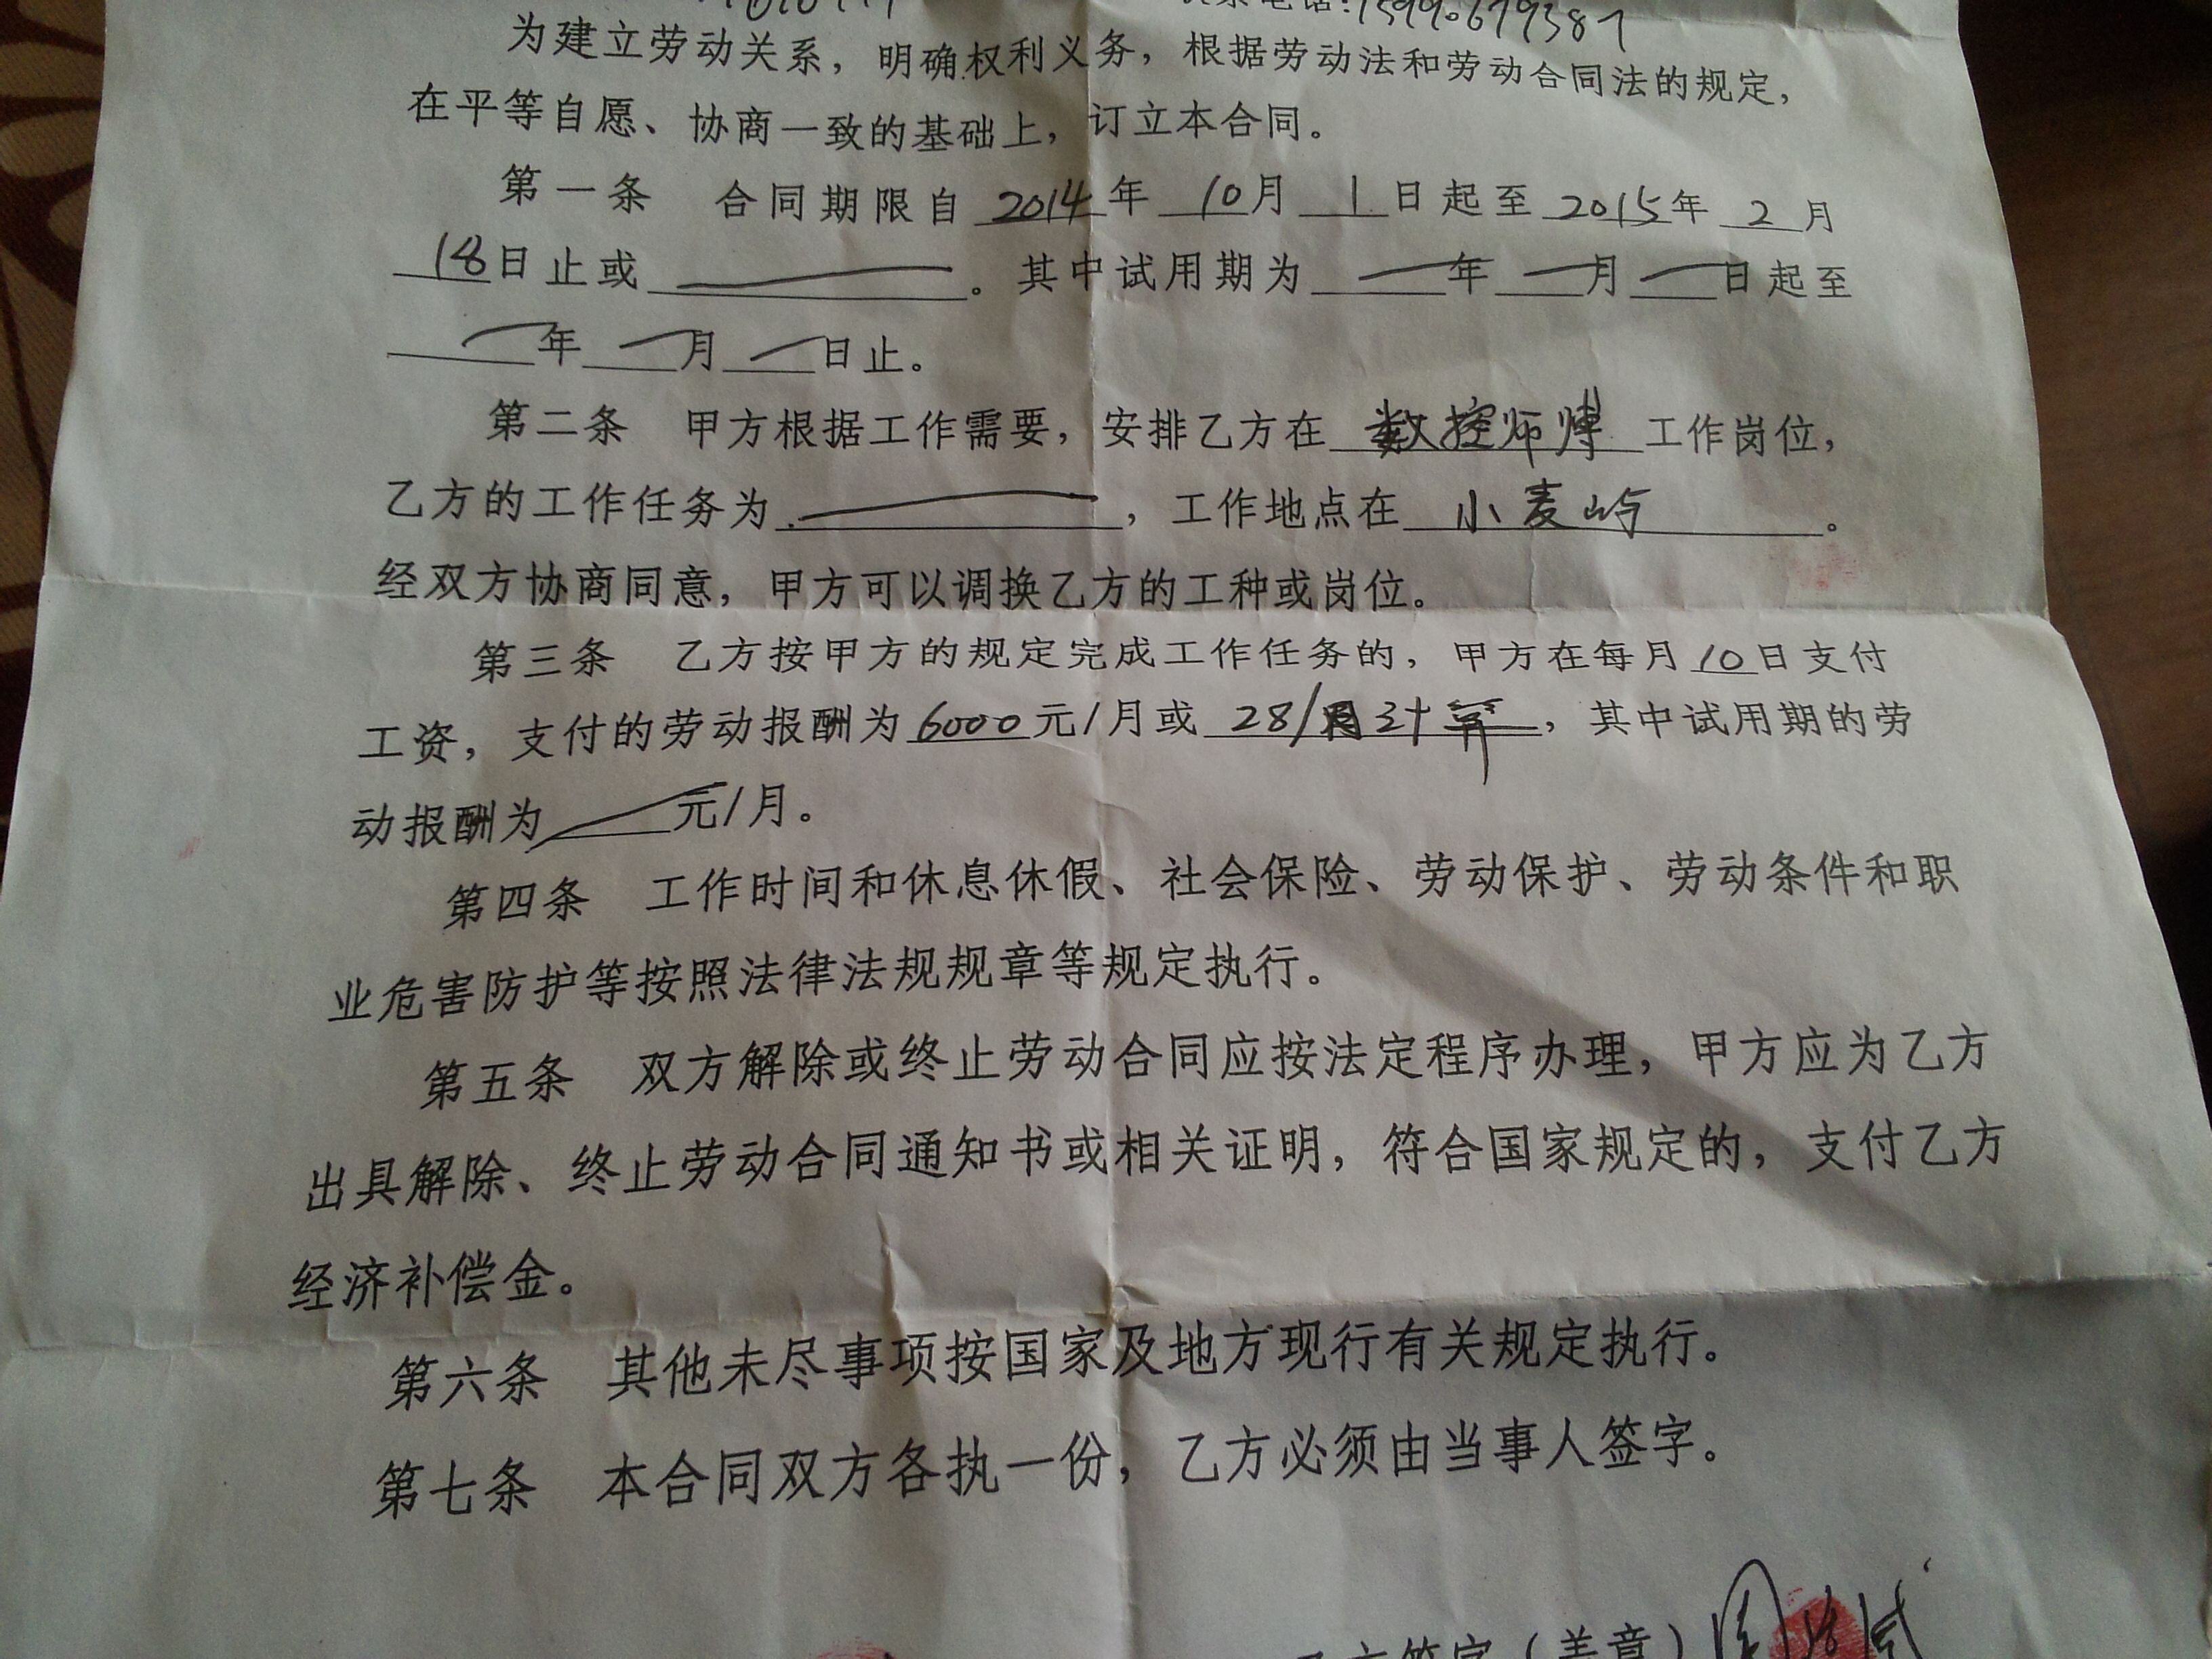 联系电话:15990679387
为建立劳动关系，明确权利义务，根据劳动法和劳动合同法的规定，
在平等自愿、协商一致的基础上，订立本合同。
第一条 合同期限自 2014 年 10 月 1 日起至 2015 年 2 月
18 日止或 。其中试用期为 年 月 日起至
年 月 日止。
第二条 甲方根据工作需要，安排乙方在 数控师傅 工作岗位，
乙方的工作任务为 ，工作地点在 小麦屿 。
经双方协商同意，甲方可以调换乙方的工种或岗位。
第三条 乙方按甲方的规定完成工作任务的，甲方在每月 10 日支付
工资，支付的劳动报酬为 6000 元/月或 28/月计算 ，其中试用期的劳
动报酬为 元/月。
第四条 工作时间和休息休假、社会保险、劳动保护、劳动条件和职
业危害防护等按照法律法规规章等规定执行。
第五条 双方解除或终止劳动合同应按法定程序办理，甲方应为乙方
出具解除、终止劳动合同通知书或相关证明，符合国家规定的，支付乙方
经济补偿金。
第六条 其他未尽事项按国家及地方现行有关规定执行。
第七条 本合同双方各执一份，乙方必须由当事人签字。
乙方签字（盖章）